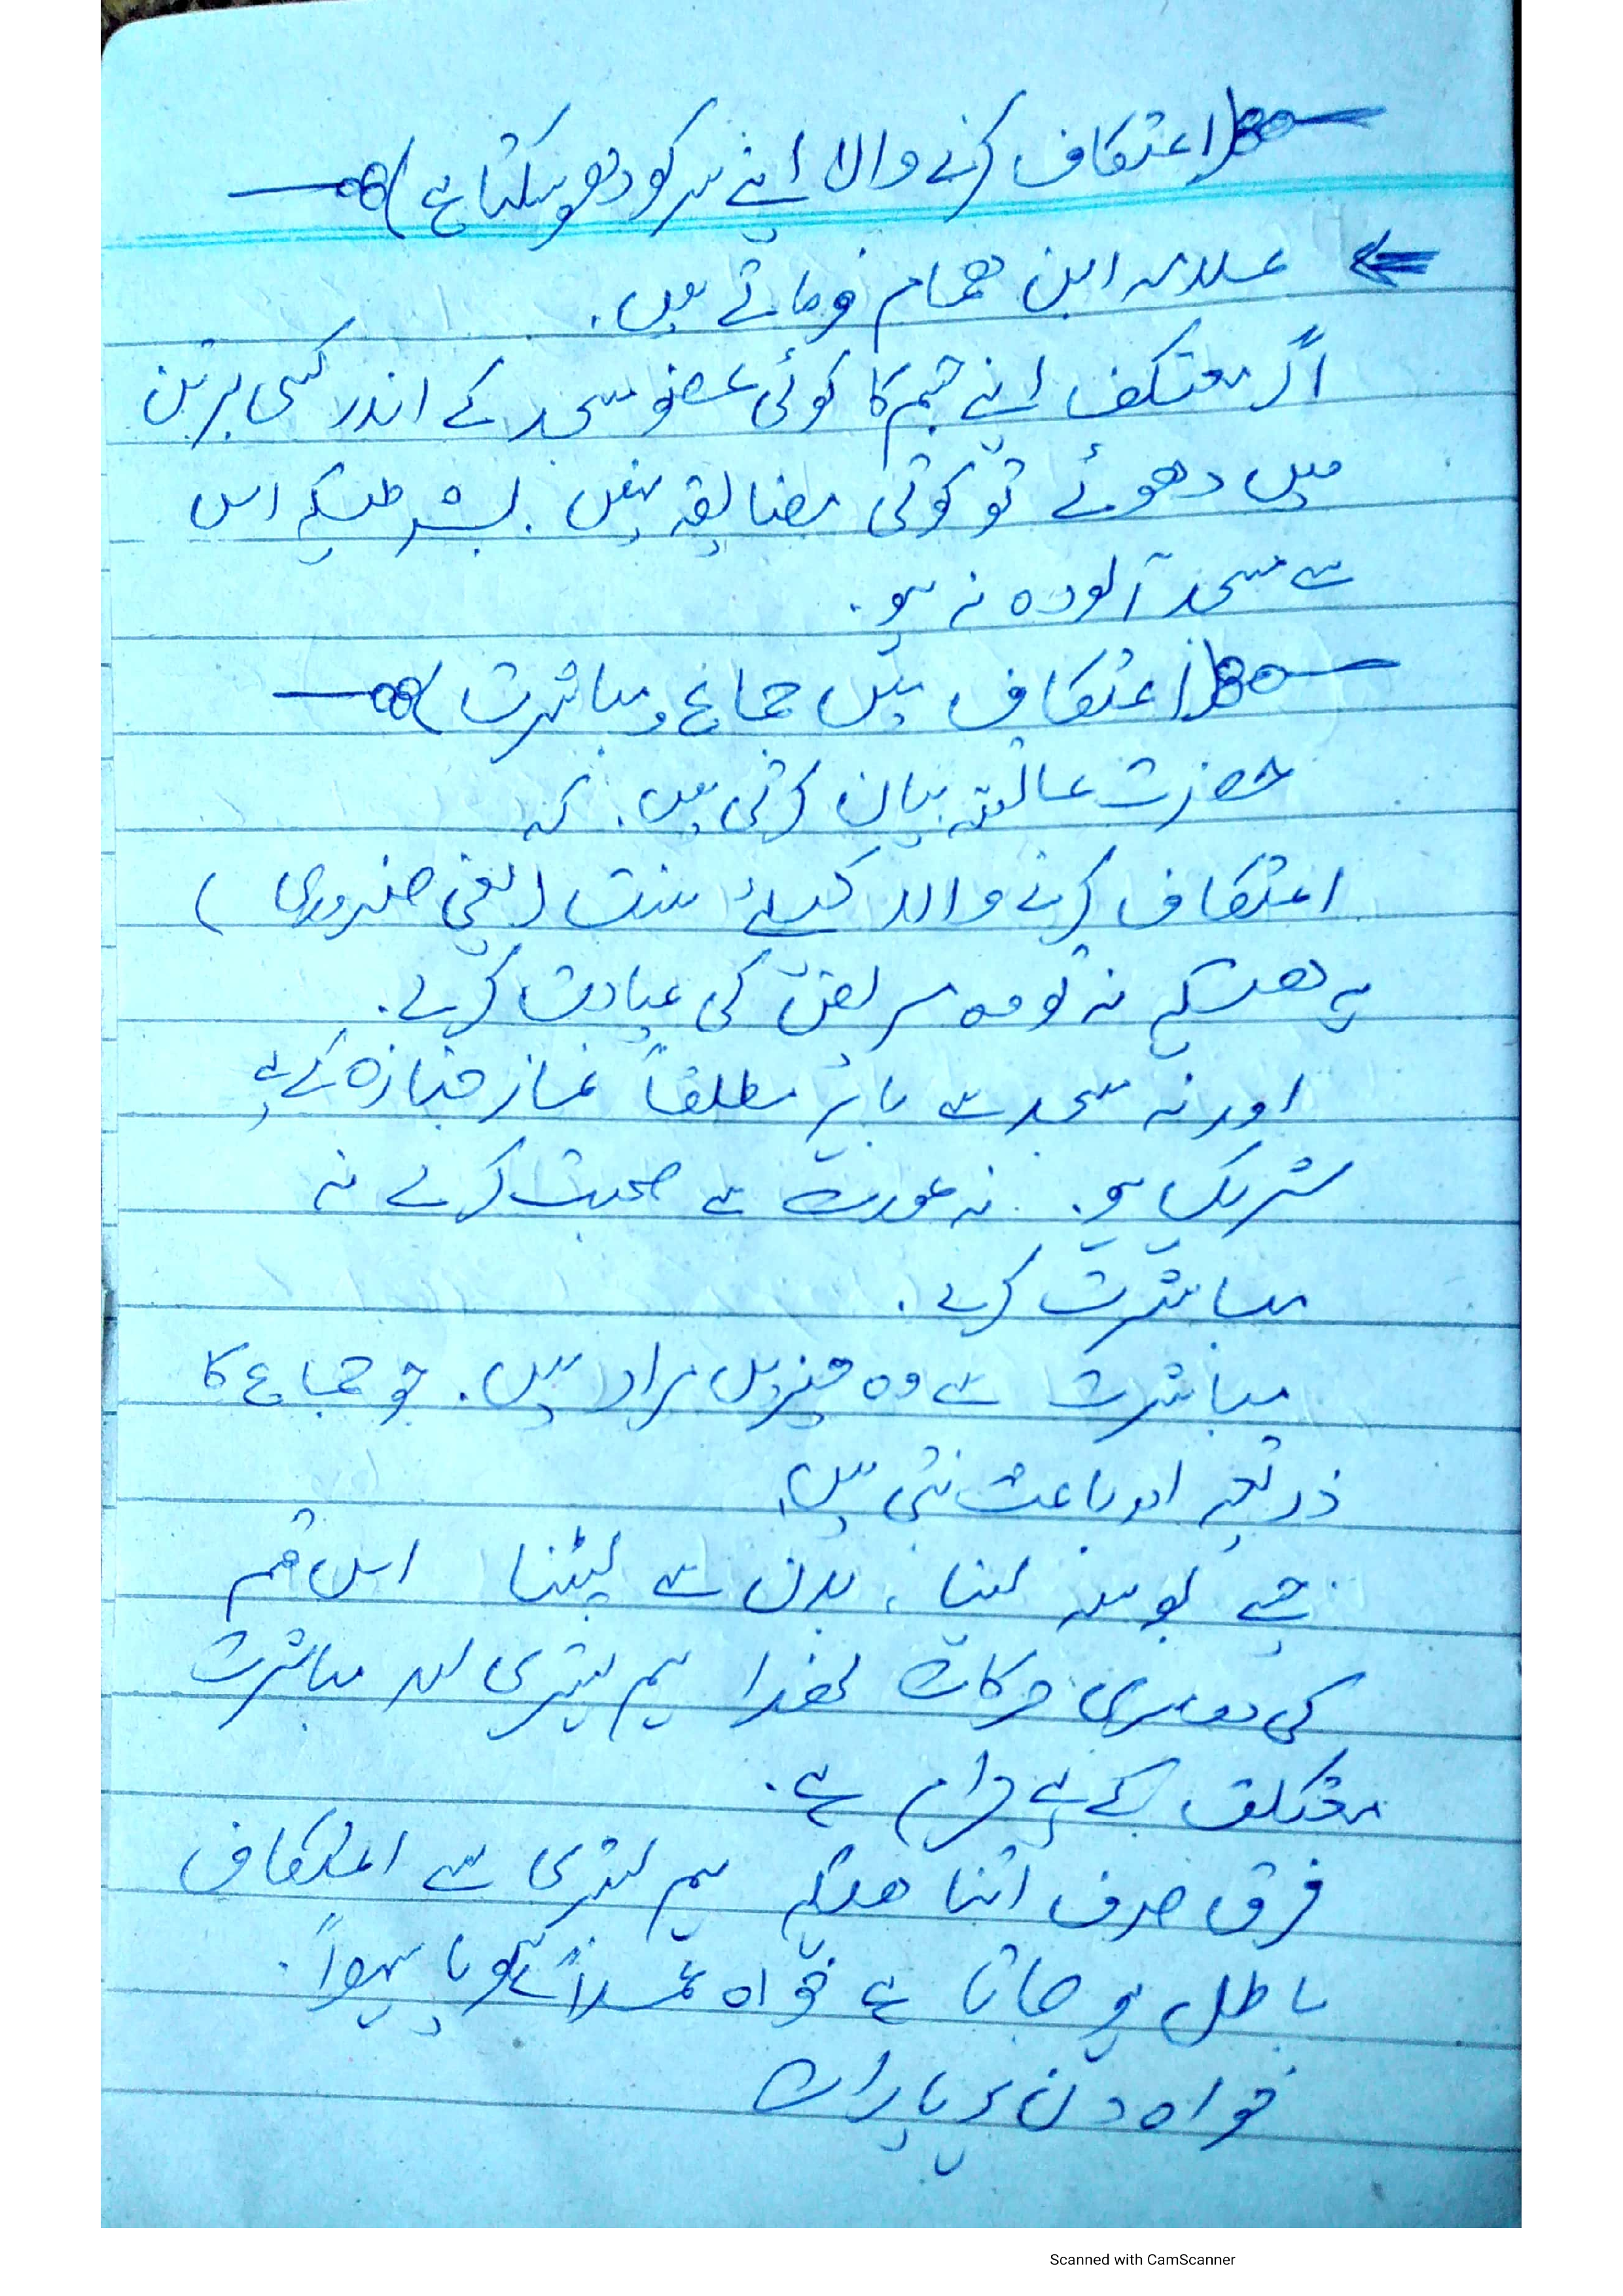 اعتکاف کرنے والا اپنے سر کو دھو سکتا ہے
علامہ ابن ھمام فرماتے ہیں.
اگر معتکف اپنے جسم کا کوئی عضو مسجد کے اندر کسی برتن
میں دھوئے تو کوئی مضائقہ نہیں. بشرطیکہ اس
سے مسجد آلودہ نہ ہو.
اعتکاف میں جماع و مباشرت
حضرت عائشہ بیان کرتی ہیں. کہ
اعتکاف کرنے والا کیلئے سنت (یعنی ضروری)
یہ ھیکہ نہ تو وہ مریض کی عیادت کرے.
اور نہ مسجد سے باہر مطلقاً نماز جنازہ کے لیے
شریک ہو. نہ عورت سے صحبت کرے نہ
مباشرت کرے.
مباشرت سے وہ چیزیں مراد ہیں. جو جماع کا
ذریعہ اور باعث بنتی ہیں
جیسے بوسہ لینا، بدن سے لپٹنا اس قسم
کی دوسری حرکات لھذا ہم بستری اور مباشرت
معتکف کے لیے حرام ہے.
فرق صرف اتنا ھیکہ ہم بستری سے اعتکاف
باطل ہو جاتا ہے خواہ عمداً ہو یا سہواً.
خواہ دن ہو یا رات